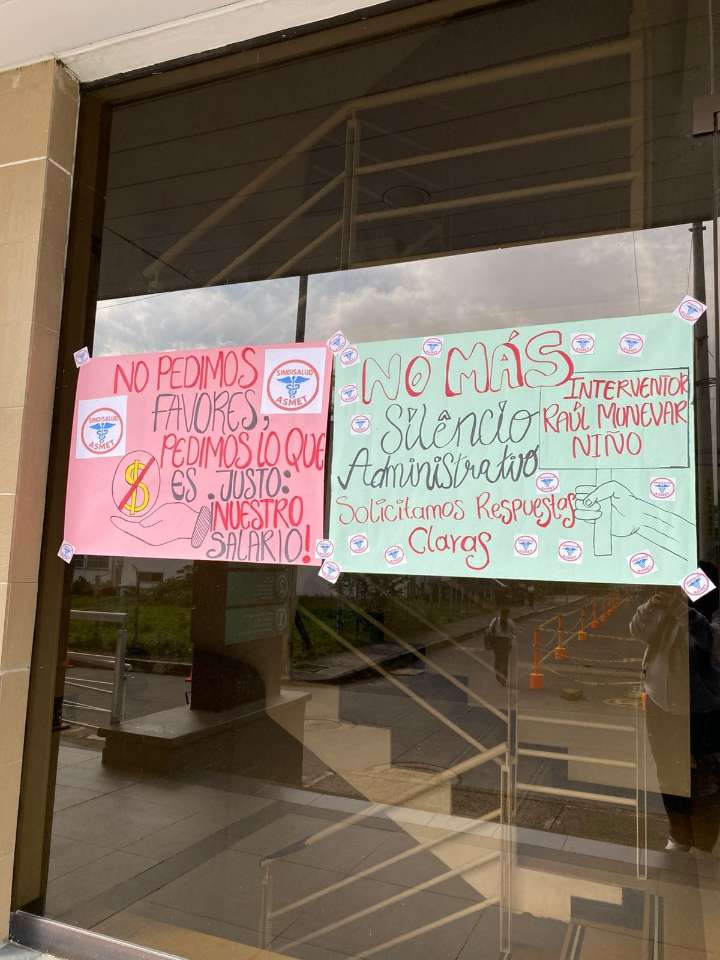 NO PEDIMOS
FAVORES,
PEDIMOS LO QUE
ES JUSTO:
NUESTRO
SALARIO!
SINDISALUD
ASMET
SINDISALUD
ASMET
$
NO MÁS
Silêncio
Administrativo
INTERVENTOR
RAÚL MONEVAR
NIÑO
Solicitamos Respuestas
Claras